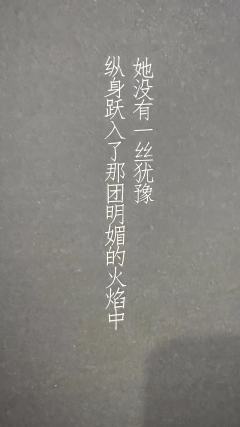 她没有一丝犹豫
纵身跃入了那团明媚的火焰中